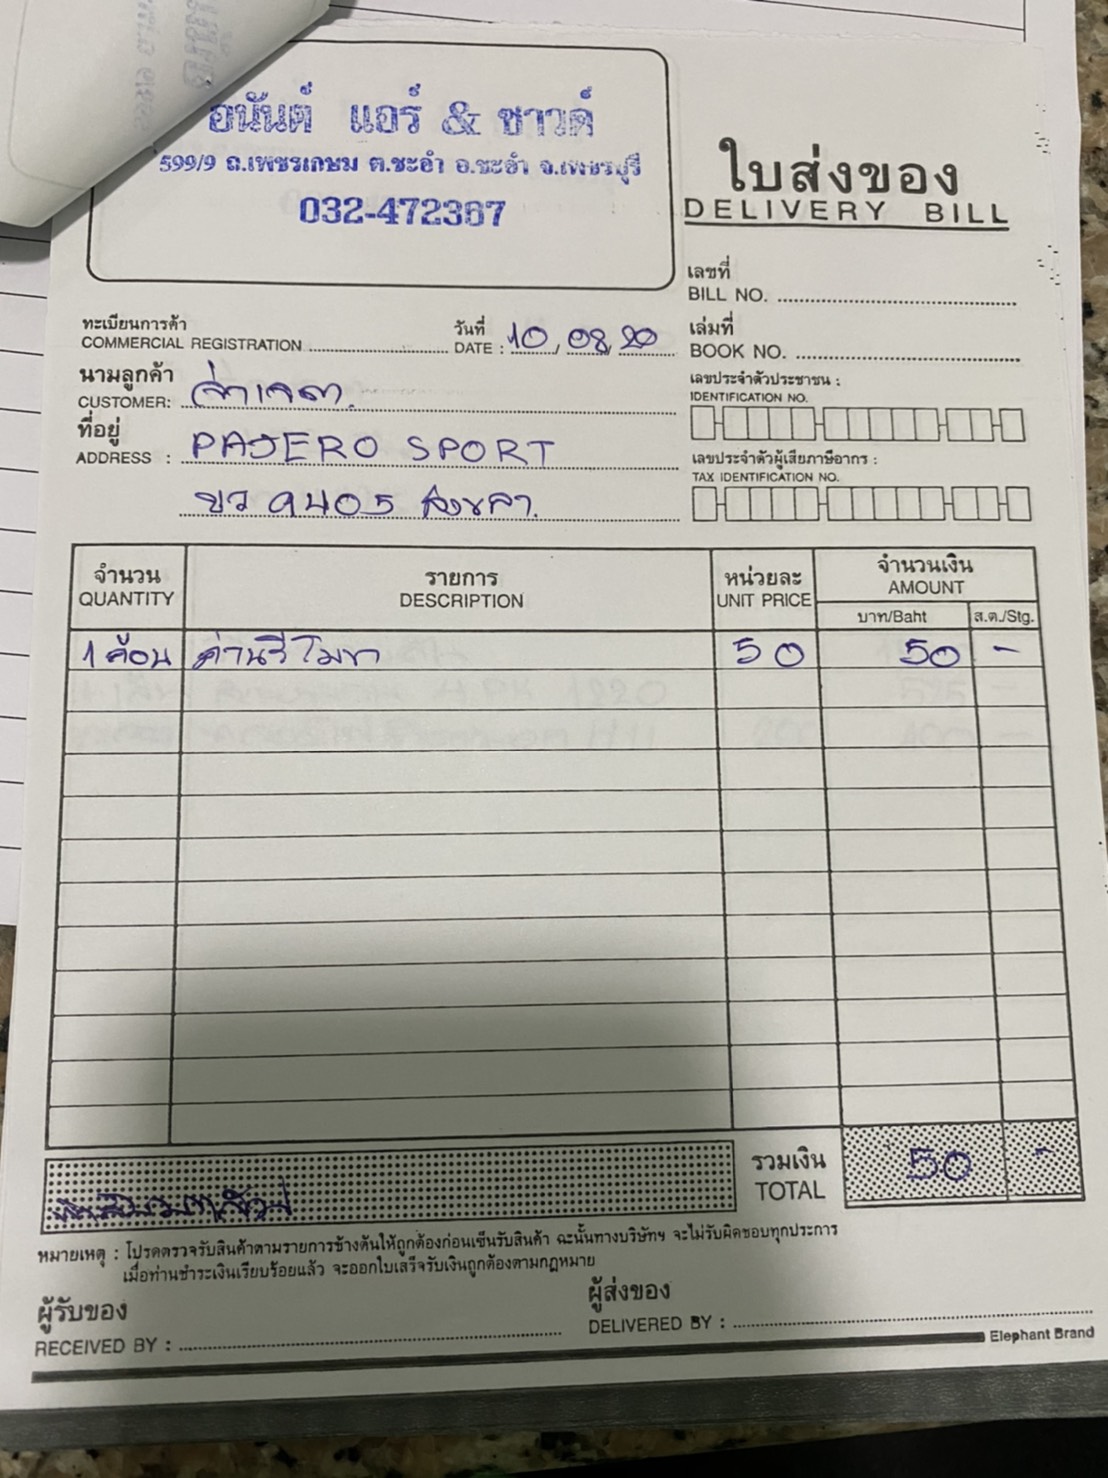 อนันต์ แอร์ & ซาวด์
599/9 ถ.เพชรเกษม ต.ชะอำ อ.ชะอำ จ.เพชรบุรี
032-472367
ใบส่งของ
DELIVERY BILL
เลขที่
BILL NO.
ทะเบียนการค้า
COMMERCIAL REGISTRATION
วันที่
DATE : 10/08/20
เล่มที่
BOOK NO.
นามลูกค้า
CUSTOMER: จ่าเจตา.
เลขประจำตัวประชาชน :
IDENTIFICATION NO.
ที่อยู่
ADDRESS : PAJERO SPORT
เลขประจำตัวผู้เสียภาษีอากร :
TAX IDENTIFICATION NO.
ขว 9405 สงขลา.
จำนวน รายการ หน่วยละ จำนวนเงิน
QUANTITY DESCRIPTION UNIT PRICE AMOUNT
บาท/Baht ส.ต./Stg.
1 ก้อน ถ่านรีโมท 50 50 -
รวมเงิน
TOTAL 50 -
หมายเหตุ : โปรดตรวจรับสินค้าตามรายการข้างต้นให้ถูกต้องก่อนเซ็นรับสินค้า ฉะนั้นทางบริษัทฯ จะไม่รับผิดชอบทุกประการ
เมื่อท่านชำระเงินเรียบร้อยแล้ว จะออกใบเสร็จรับเงินถูกต้องตามกฎหมาย
ผู้รับของ
RECEIVED BY :
ผู้ส่งของ
DELIVERED BY :
Elephant Brand